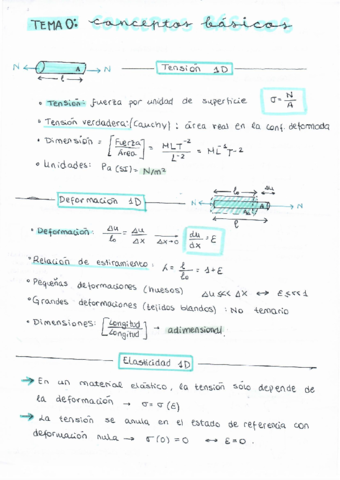 TEMA 0: conceptos básicos
Tensión 1D
N ← A → N
l
• Tensión: fuerza por unidad de superficie σ = N/A
• Tensión verdadera (Cauchy): área real en la conf. deformada
• Dimensión = [Fuerza/Área] = MLT⁻²/L⁻² = ML⁻¹T⁻²
• Unidades: Pa (SI) = N/m²
Deformación 1D
l₀ Δu
N ← A → N
l
• Deformación: Δu/l₀ = Δu/Δx Δx→0 du/dx = ε
• Relación de estiramiento: λ = l/l₀ = 1+ε
• Pequeñas deformaciones (huesos) Δu << Δx ↔ ε << 1
• Grandes deformaciones (tejidos blandos): No temario
• Dimensiones: [Longitud/Longitud] → adimensional
Elasticidad 1D
→ En un material elástico, la tensión sólo depende de
la deformación → σ = σ(ε)
→ La tensión se anula en el estado de referencia con
deformación nula → σ(0) = 0 ↔ ε = 0.